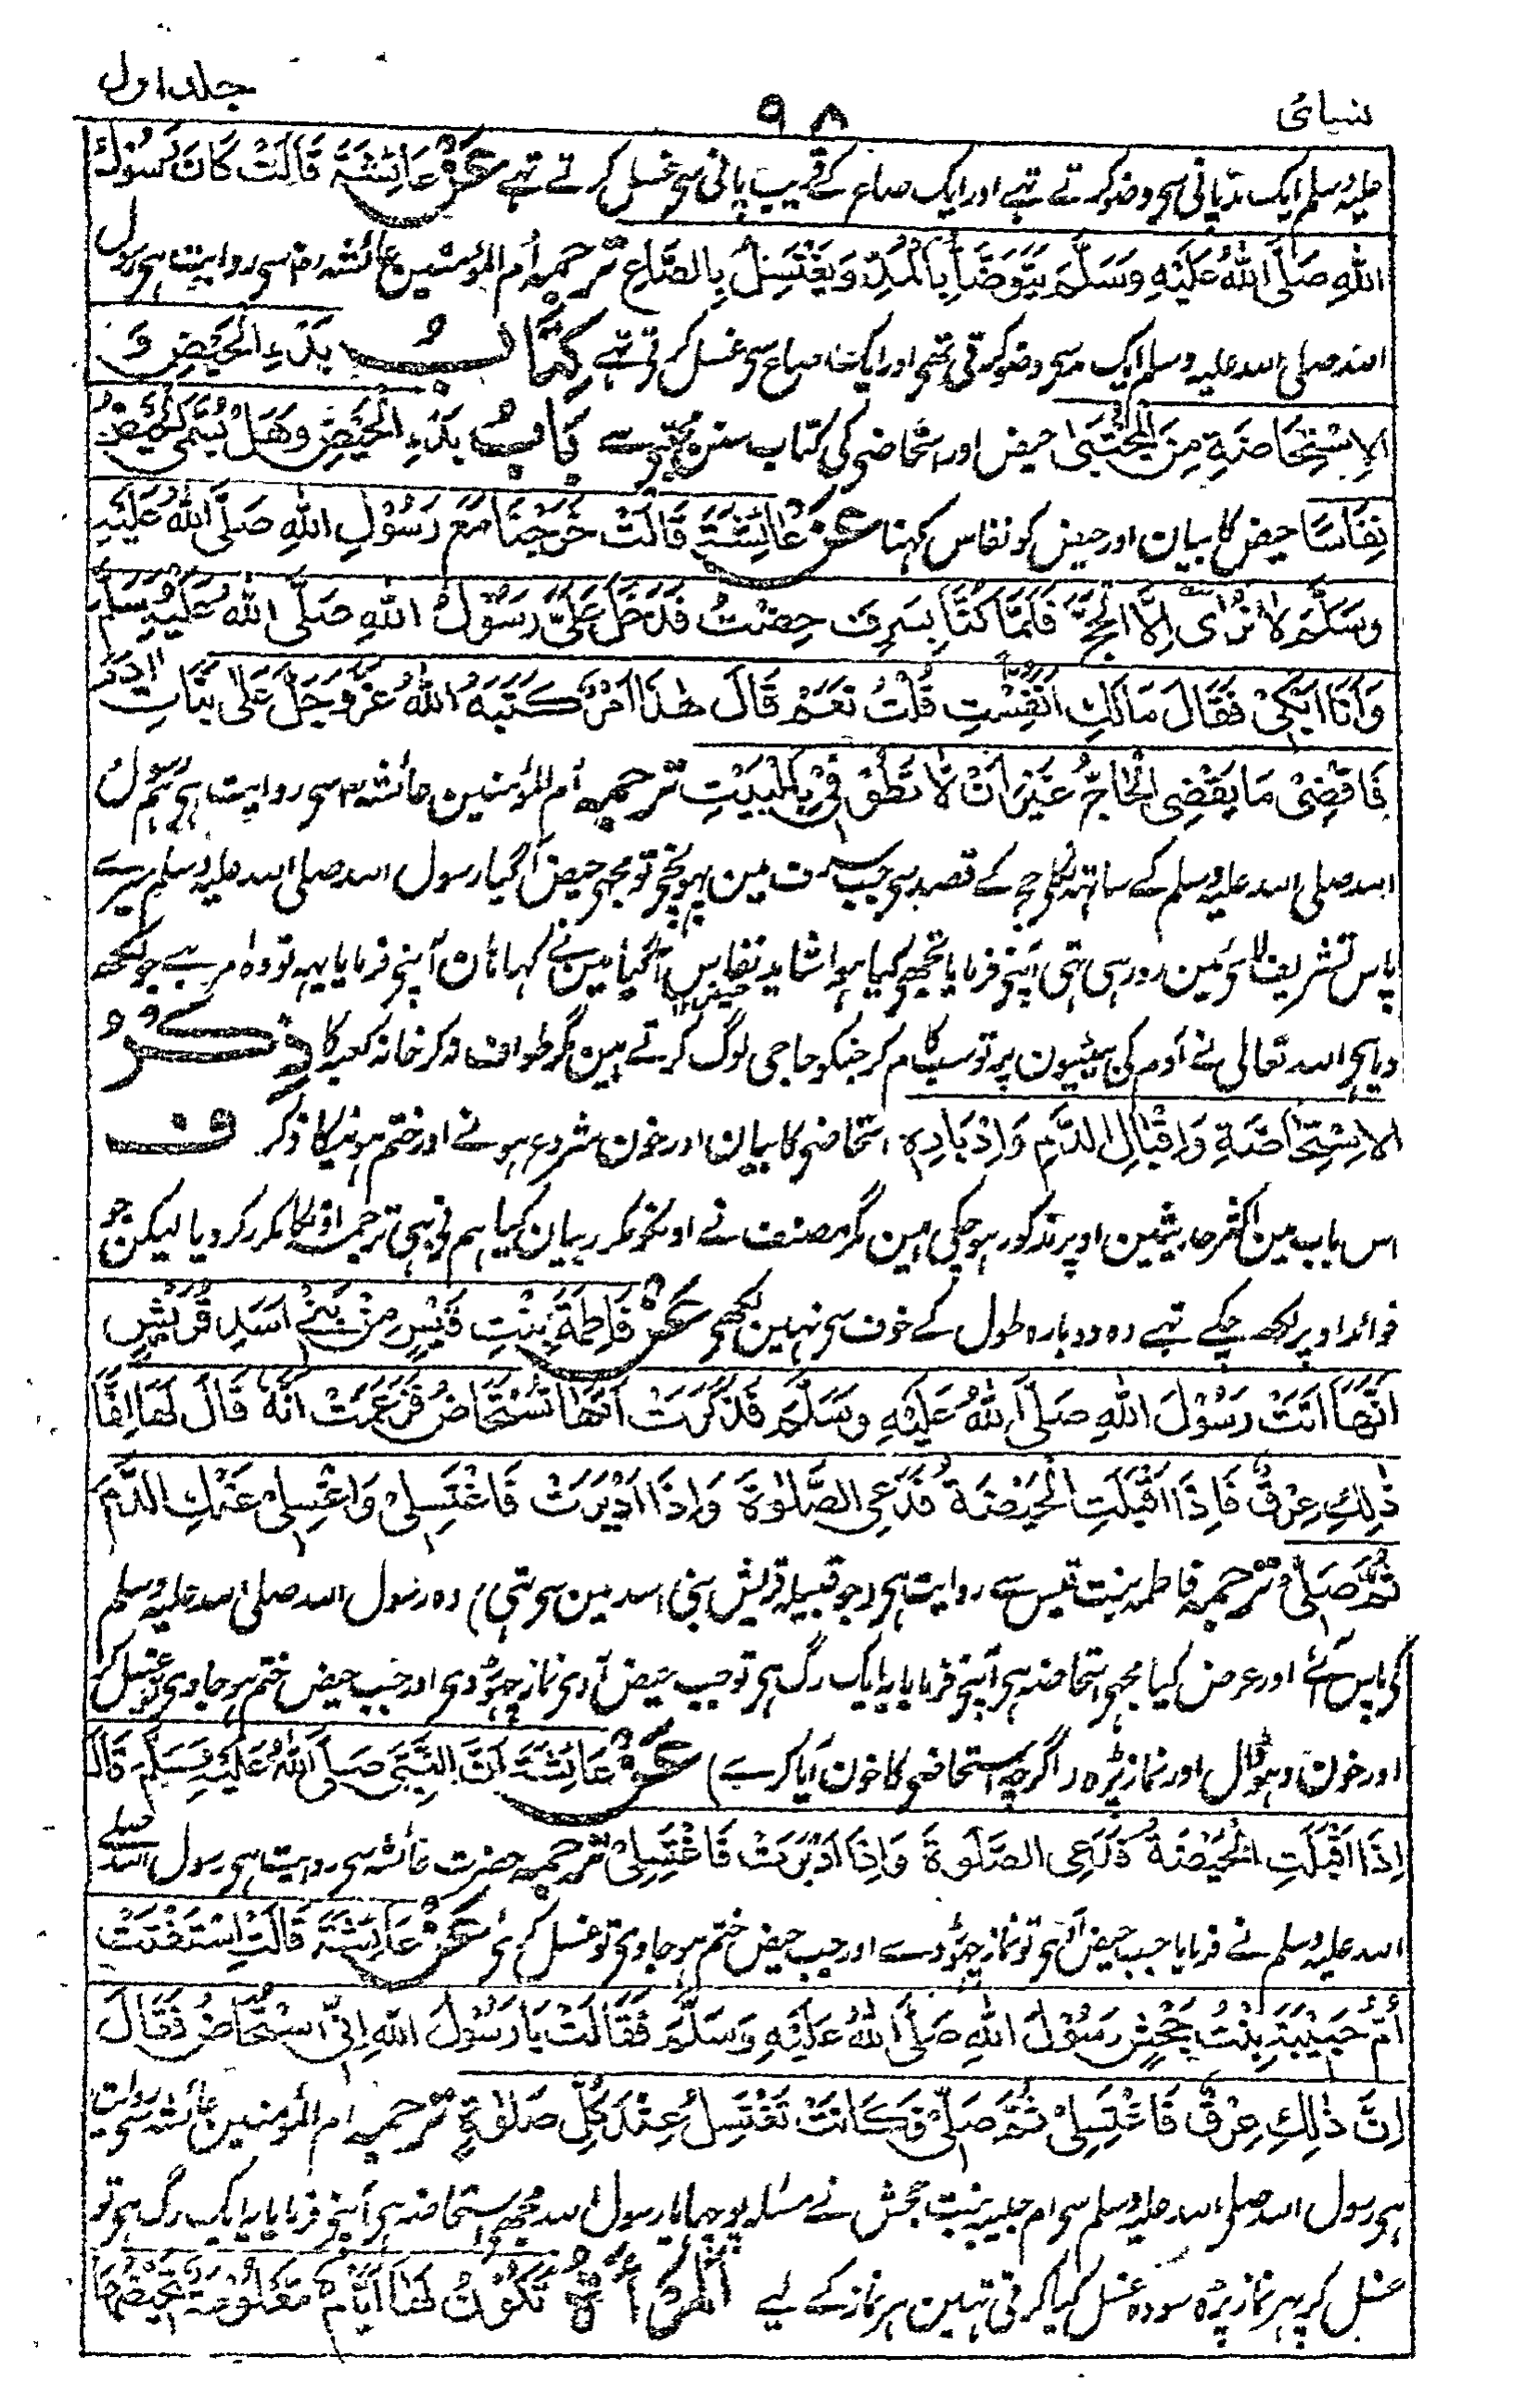 نسائی ۹۸ جلد اول
علیہ وسلم ایک مد پانی سی وضو کرتے تہے اور ایک صاع کے قریب پانی سی غسل کرتے تہے عَنْ عَائِشَةَ قَالَتْ كَانَ رَسُوْلُ
اللهِ صَلَّى اللهُ عَلَيْهِ وَسَلَّمَ يَتَوَضَّأُ بِالْمُدِّ وَيَغْتَسِلُ بِالصَّاعِ ترجمہ اُم المؤمنین عائشہ رض سی روایت ہی رسول
اللہ صلی اللہ علیہ وسلم ایک مد سی وضو کرتی تھی اور ایک صاع سی غسل کرتی تہے كِتَابُ بَدْءِ الْحَيْضِ وَ
الاِسْتِحَاضَةِ مِنَ الْمُجْتَبٰى حیض اور استحاضی کی کتاب سنن مجتبی سے بَابُ بَدْءِ الْحَيْضِ وَهَلْ يُسَمَّى الْحَيْضُ
نِفَاسًا حیض کا بیان اور حیض کو نفاس کہنا عَنْ عَائِشَةَ قَالَتْ خَرَجْنَا مَعَ رَسُوْلِ اللهِ صَلَّى اللهُ عَلَيْهِ
وَسَلَّمَ لَا نُرٰى اِلَّا الْحَجَّ فَلَمَّا كُنَّا بِسَرِفَ حِضْتُ فَدَخَلَ عَلَيَّ رَسُوْلُ اللهِ صَلَّى اللهُ عَلَيْهِ وَسَلَّمَ
وَاَنَا اَبْكِيْ فَقَالَ مَالَكِ اَنَفِسْتِ قُلْتُ نَعَمْ قَالَ هٰذَا اَمْرٌ كَتَبَهُ اللهُ عَزَّ وَجَلَّ عَلٰى بَنَاتِ اٰدَمَ
فَاقْضِيْ مَا يَقْضِي الْحَاجُّ غَيْرَ اَنْ لَّا تَطُوْفِيْ بِالْبَيْتِ ترجمہ اُم المؤمنین عائشہ رض سی روایت ہی ہم رسول
اللہ صلی اللہ علیہ وسلم کے ساتھ نکلی حج کے قصد سی جب سرف مین پہونچی تو مجہی حیض آگیا رسول اللہ صلی اللہ علیہ وسلم میرے
پاس تشریف لائی مین رو رہی تہی آپنی فرمایا تجہی کیا ہوا شاید نفاس (حیض) آگیا مین نے کہا ہان آپنی فرمایا یہہ تو وہ امر ہے جو لکھہ
دیا ہی اللہ تعالی نے آدم کی بیٹیون پر تو سب کام کر جنکو حاجی لوگ کرتے ہین مگر طواف نہ کر خانہ کعبہ کا ذِكْرُ
الاِسْتِحَاضَةِ وَاِقْبَالِ الدَّمِ وَاِدْبَارِهٖ استحاضی کا بیان اور خون شروع ہونے اور ختم ہونیکا ذکر ف
اس باب مین اکثر حدیثین اوپر مذکور ہو چکی ہین مگر مصنف نے اونکو مکرر بیان کیا ہم نی بہی ترجمہ اونکا مکرر کر دیا لیکن جو
فوائد اوپر لکھہ چکے تہے وہ دوبارہ طول کے خوف سی نہین لکھی عَنْ فَاطِمَةَ بِنْتِ قَيْسٍ مِنْ بَنِيْ اَسَدِ قُرَيْشٍ
اَنَّهَا اَتَتْ رَسُوْلَ اللهِ صَلَّى اللهُ عَلَيْهِ وَسَلَّمَ فَذَكَرَتْ اَنَّهَا تُسْتَحَاضُ فَزَعَمَتْ اَنَّهُ قَالَ لَهَا اِنَّمَا
ذٰلِكِ عِرْقٌ فَاِذَا اَقْبَلَتِ الْحَيْضَةُ فَدَعِي الصَّلٰوةَ وَاِذَا اَدْبَرَتْ فَاغْتَسِلِيْ وَاغْسِلِيْ عَنْكِ الدَّمَ
ثُمَّ صَلِّيْ ترجمہ فاطمہ بنت قیس سے روایت ہی (جو قبیلہ قریش بنی اسد مین سی تہی) وہ رسول اللہ صلی اللہ علیہ وسلم
کی پاس آئے اور عرض کیا مجہی استحاضہ ہی آپنی فرمایا یہ ایک رگ ہی تو جب حیض آوی نماز چہوڑ دی اور جب حیض ختم ہو جاوی تو غسل کر
اور خون دہو ڈال اور نماز پڑہ (اگرچہ استحاضی کا خون آیا کرے) عَنْ عَائِشَةَ اَنَّ النَّبِيَّ صَلَّى اللهُ عَلَيْهِ وَسَلَّمَ قَالَ
اِذَا اَقْبَلَتِ الْحَيْضَةُ فَدَعِي الصَّلٰوةَ وَاِذَا اَدْبَرَتْ فَاغْتَسِلِيْ ترجمہ حضرت عائشہ سی روایت ہی رسول اللہ صلے
اللہ علیہ وسلم نے فرمایا جب حیض آئی تو نماز چہوڑ دے اور جب حیض ختم ہو جاوی تو غسل کری عَنْ عَائِشَةَ قَالَتْ اِسْتَفْتَتْ
اُمُّ حَبِيْبَةَ بِنْتُ جَحْشٍ رَسُوْلَ اللهِ صَلَّى اللهُ عَلَيْهِ وَسَلَّمَ فَقَالَتْ يَا رَسُوْلَ اللهِ اِنِّيْ اُسْتَحَاضُ فَقَالَ
اِنَّ ذٰلِكِ عِرْقٌ فَاغْتَسِلِيْ ثُمَّ صَلِّيْ فَكَانَتْ تَغْتَسِلُ عِنْدَ كُلِّ صَلٰوةٍ ترجمہ ام المؤمنین عائشہ سی روایت
ہی رسول اللہ صلی اللہ علیہ وسلم سی ام حبیبہ بنت جحش نے مسئلہ پوچہا یا رسول اللہ مجھے استحاضہ ہی آپنی فرمایا یہ ایک رگ ہی تو
غسل کر پہر نماز پڑہ سو وہ غسل کیا کرتی تہین ہر نماز کے لیے اَلْمَرْأَةُ تَكُوْنُ لَهَا اَيَّامٌ مَعْلُوْمَةٌ تَحِيْضُهَا